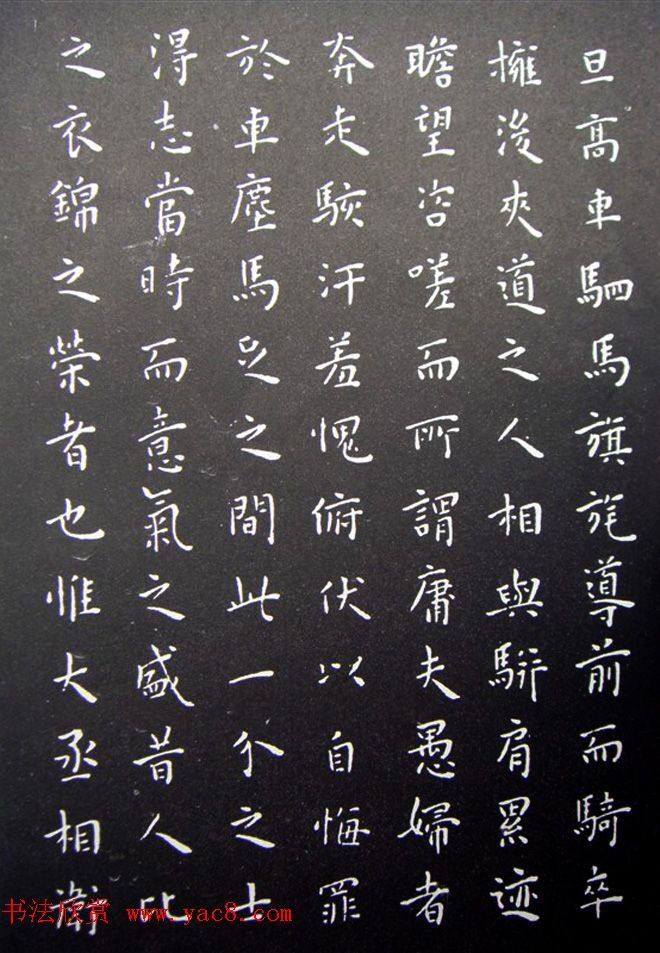 旦高車駟馬旗旄導前而騎卒
擁後夾道之人相與駢肩累迹
瞻望咨嗟而所謂庸夫愚婦者
奔走駭汗羞愧俯伏以自悔罪
於車塵馬足之間此一介之士
得志當時而意氣之盛昔人比
之衣錦之榮者也惟大丞相衛
书法欣赏 www.yac8.com